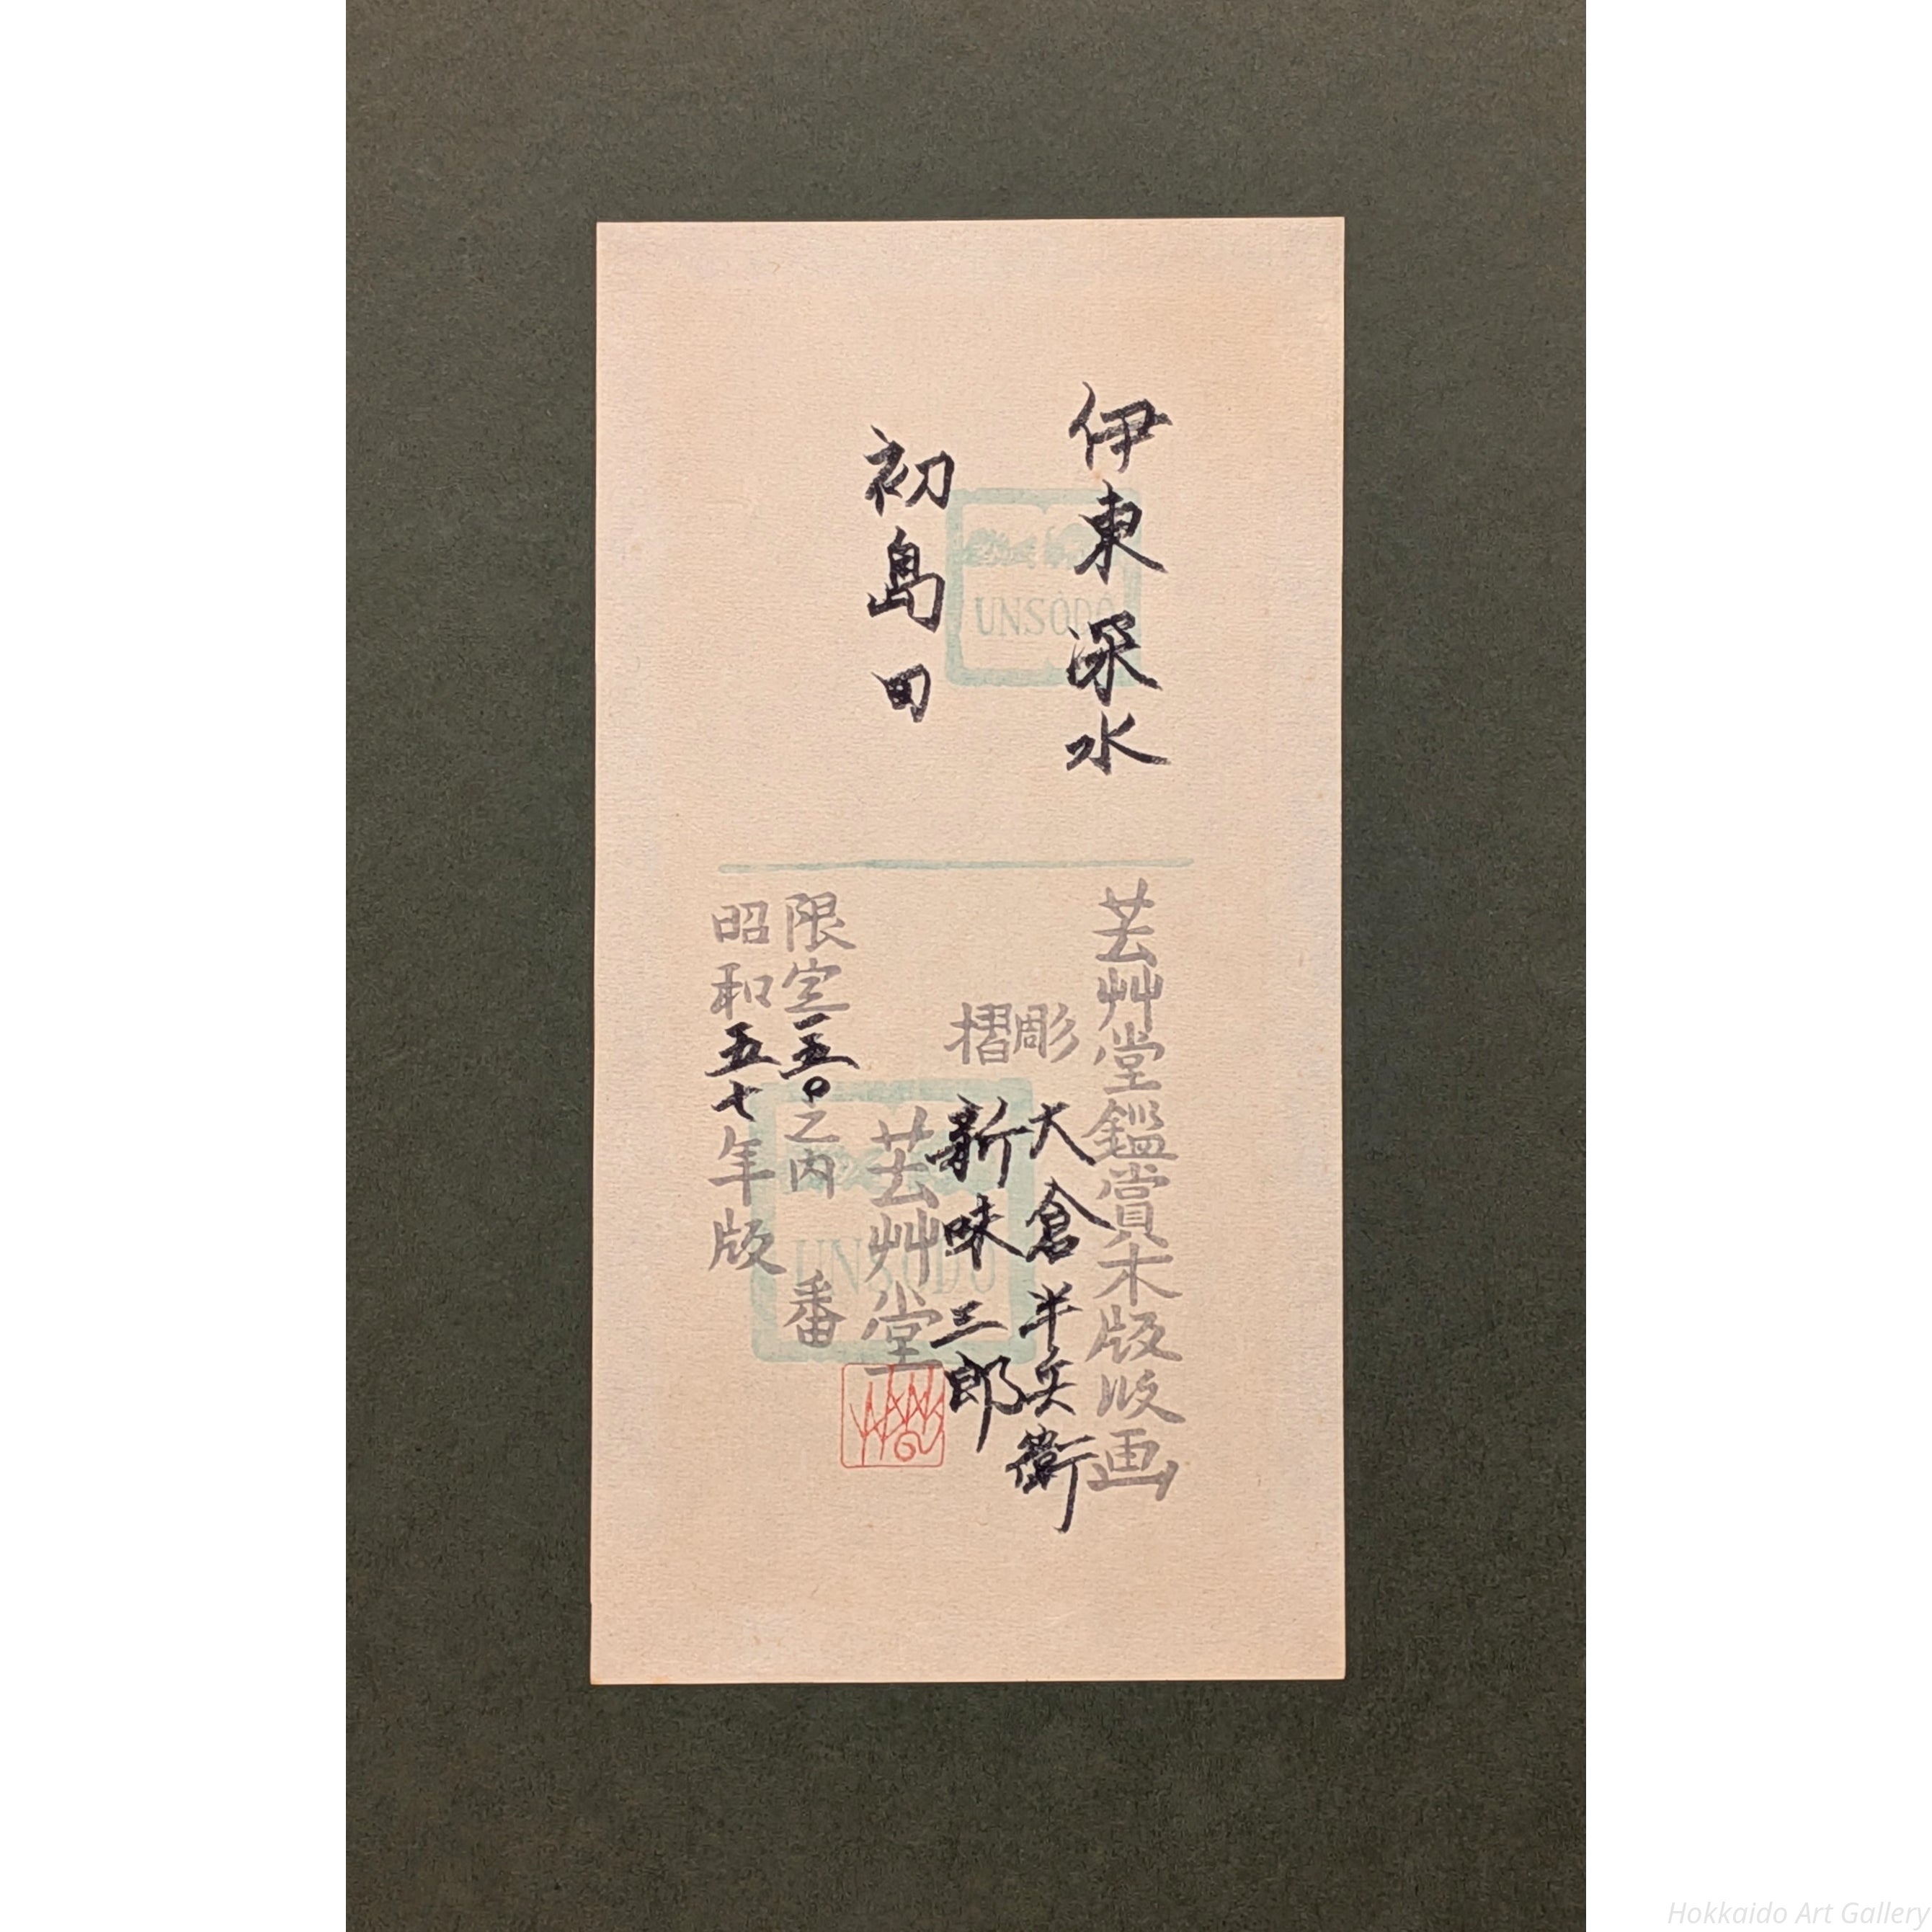 伊東深水
初島田
UNSŌDŌ
芸艸堂鑑賞木版画
彫 大倉半兵衛
摺 新味三郎
芸艸堂
UNSŌDŌ
限定一五〇之内 番
昭和五七年版